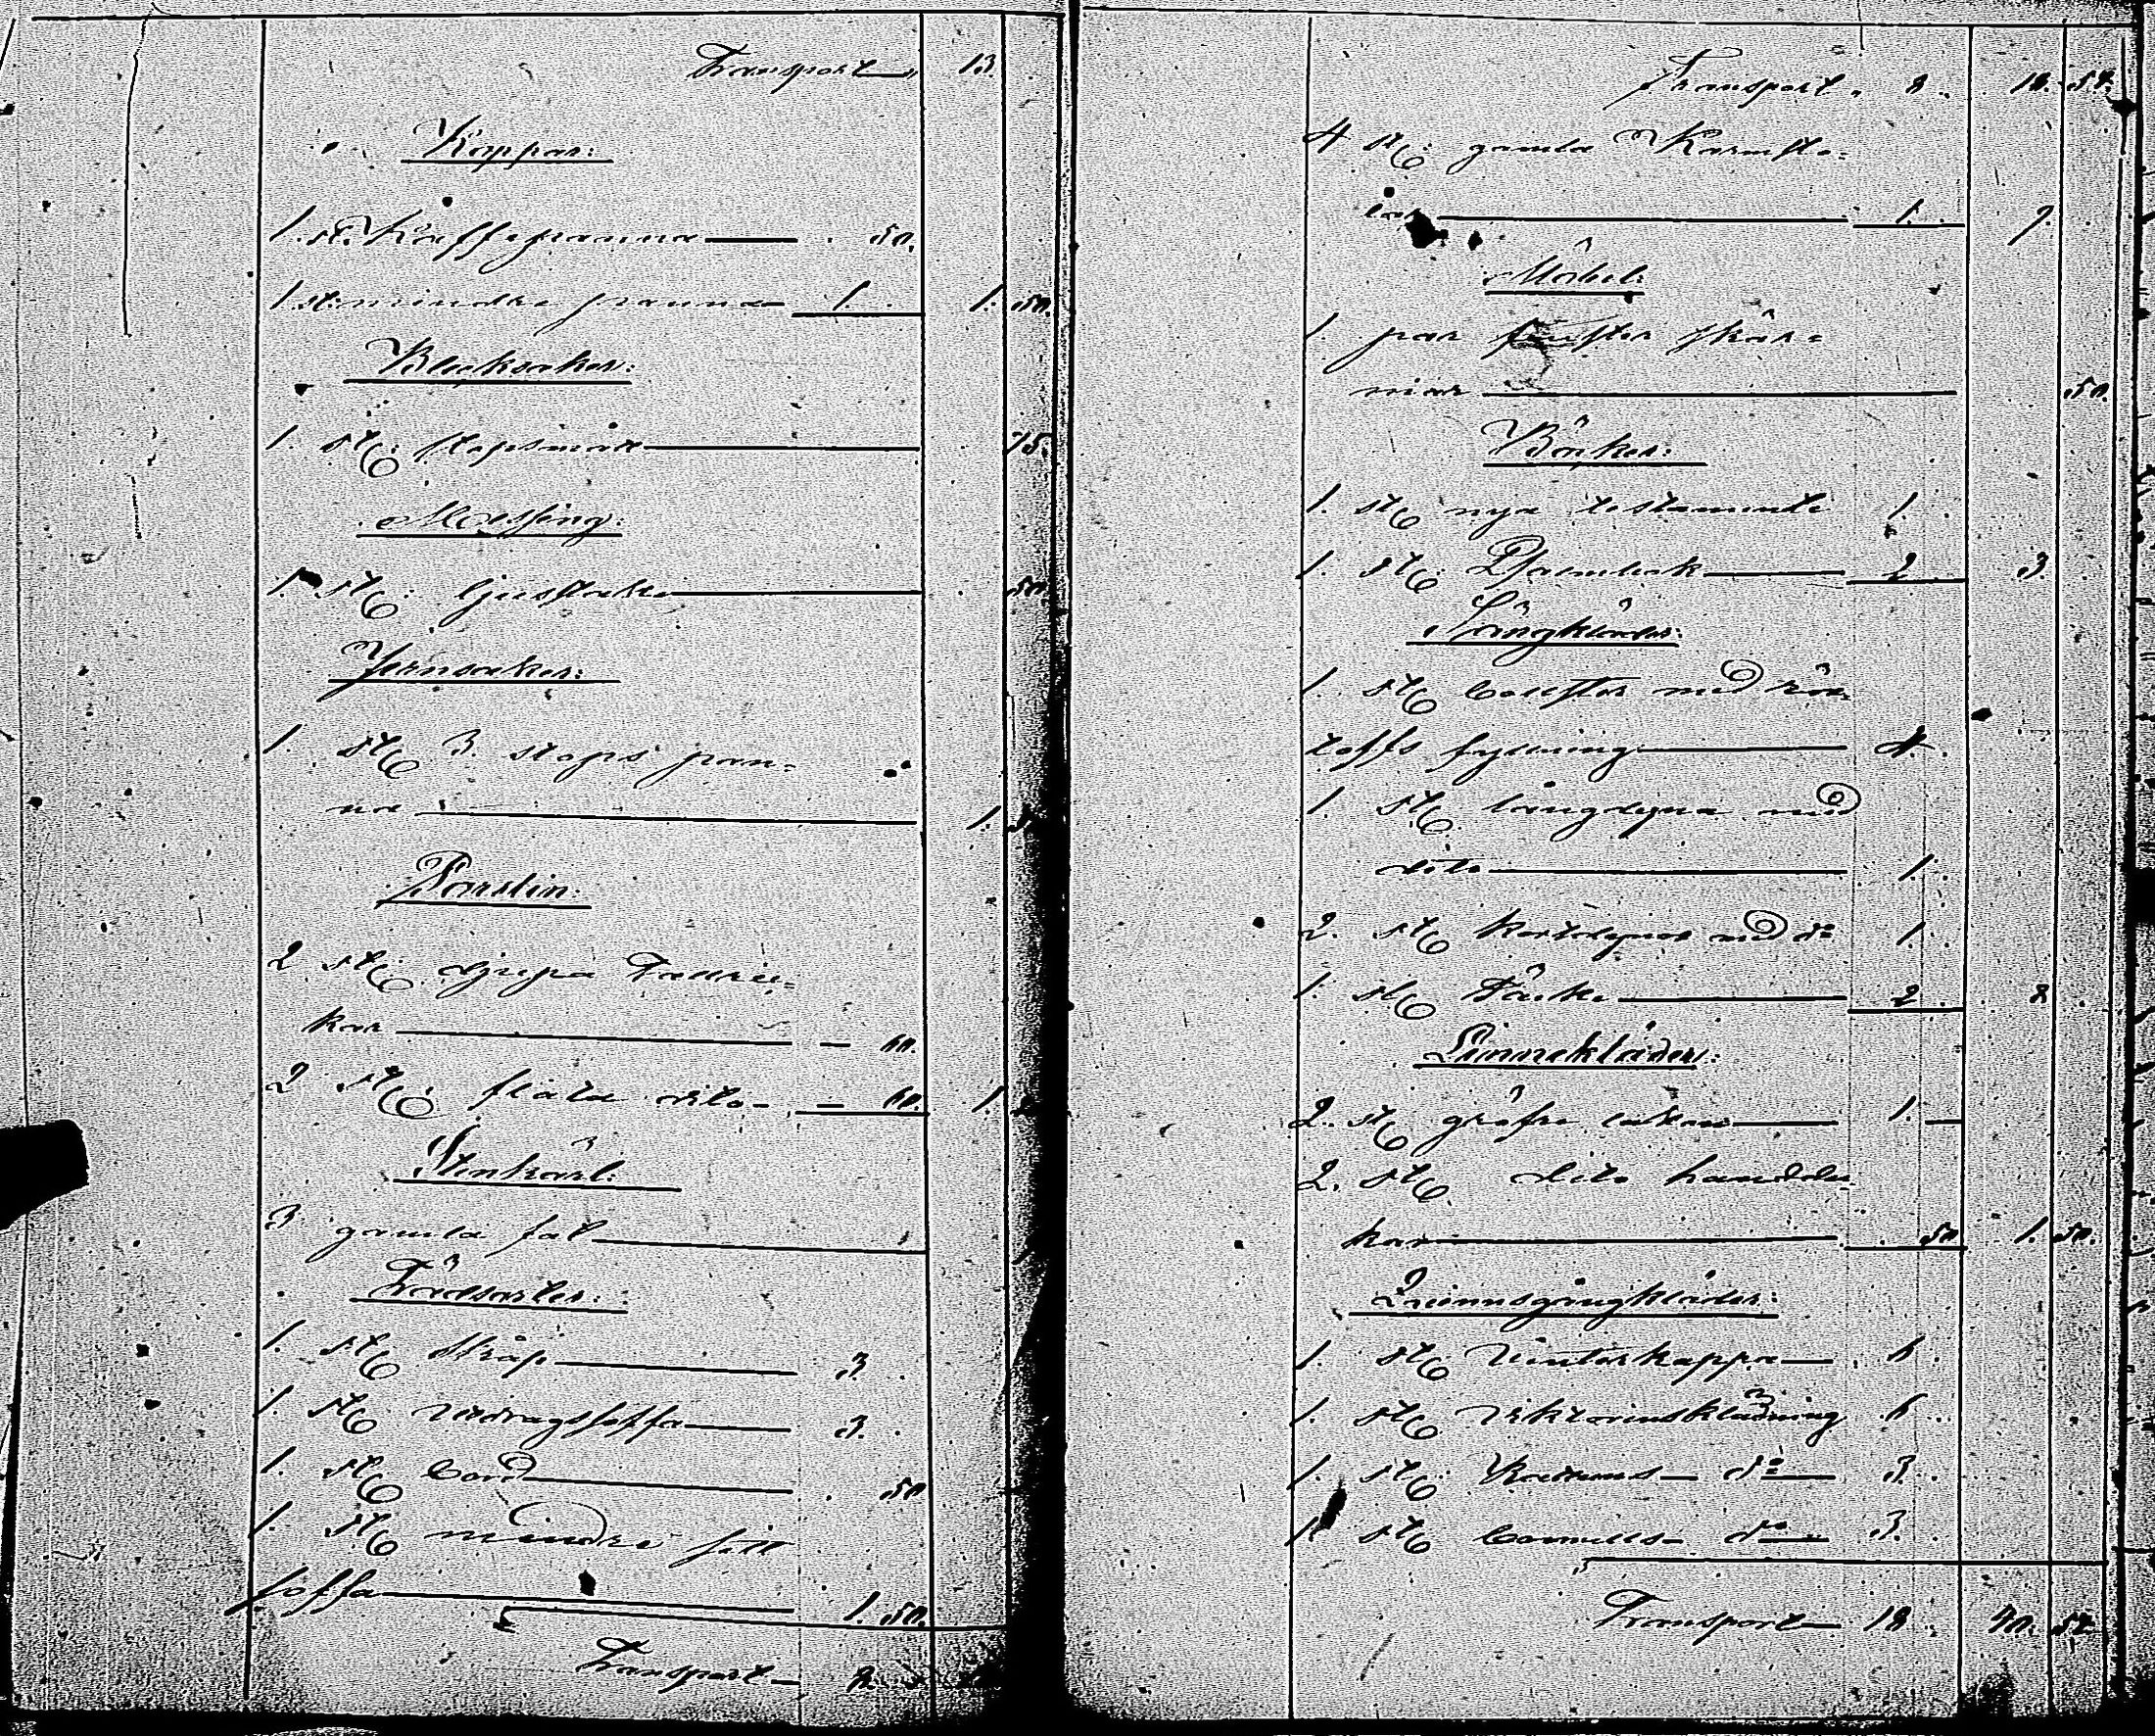 Transport 13.
Koppar:
1. st. Kaffepanna 50.
1 st. mindre panna 1. 1. 50.
Blecksaker:
1. st. stopsmått 75.
Messing:
1. st. ljusstake 50.
Jernsaker:
1. st. 3 stops pan-
na 1.
Porslin:
2 st. djupa Tallric-
kar 60.
2 st. flata dito 60. 1.
Stenkärl:
3 gamla fat
Trädsaker:
1. st. Skåp 3.
1. st. utdragssoffa 3.
1. st. bord 50
1. st. mindre sätt
soffa 1. 50.
Transport 8.
Transport 8. 18. 57.
4 st. gamla Karmsto-
lar 1. 9.
Möbel:
1. par fenster skär-
mar 50.
Böcker:
1. st. nya testamente 1.
1. st. Psalmbok 2 3.
Sängkläder:
1. st. bolster med hö
toffs fyllning 4.
1. st. långdyna med
dito 1.
2. st. kortdynor med do 1.
1. st. Täcke 2 8
Linnekläder:
2. st. gröfre lakan 1
2. st. dito handdu-
kar 50 1. 50.
Qvinnsgångkläder:
1. st. Vinterkappa 6.
1. st. Viktorinsklädning 6.
1. st. Kattuns do 3.
1. st. bomulls do 3.
Transport 18. 40. 57